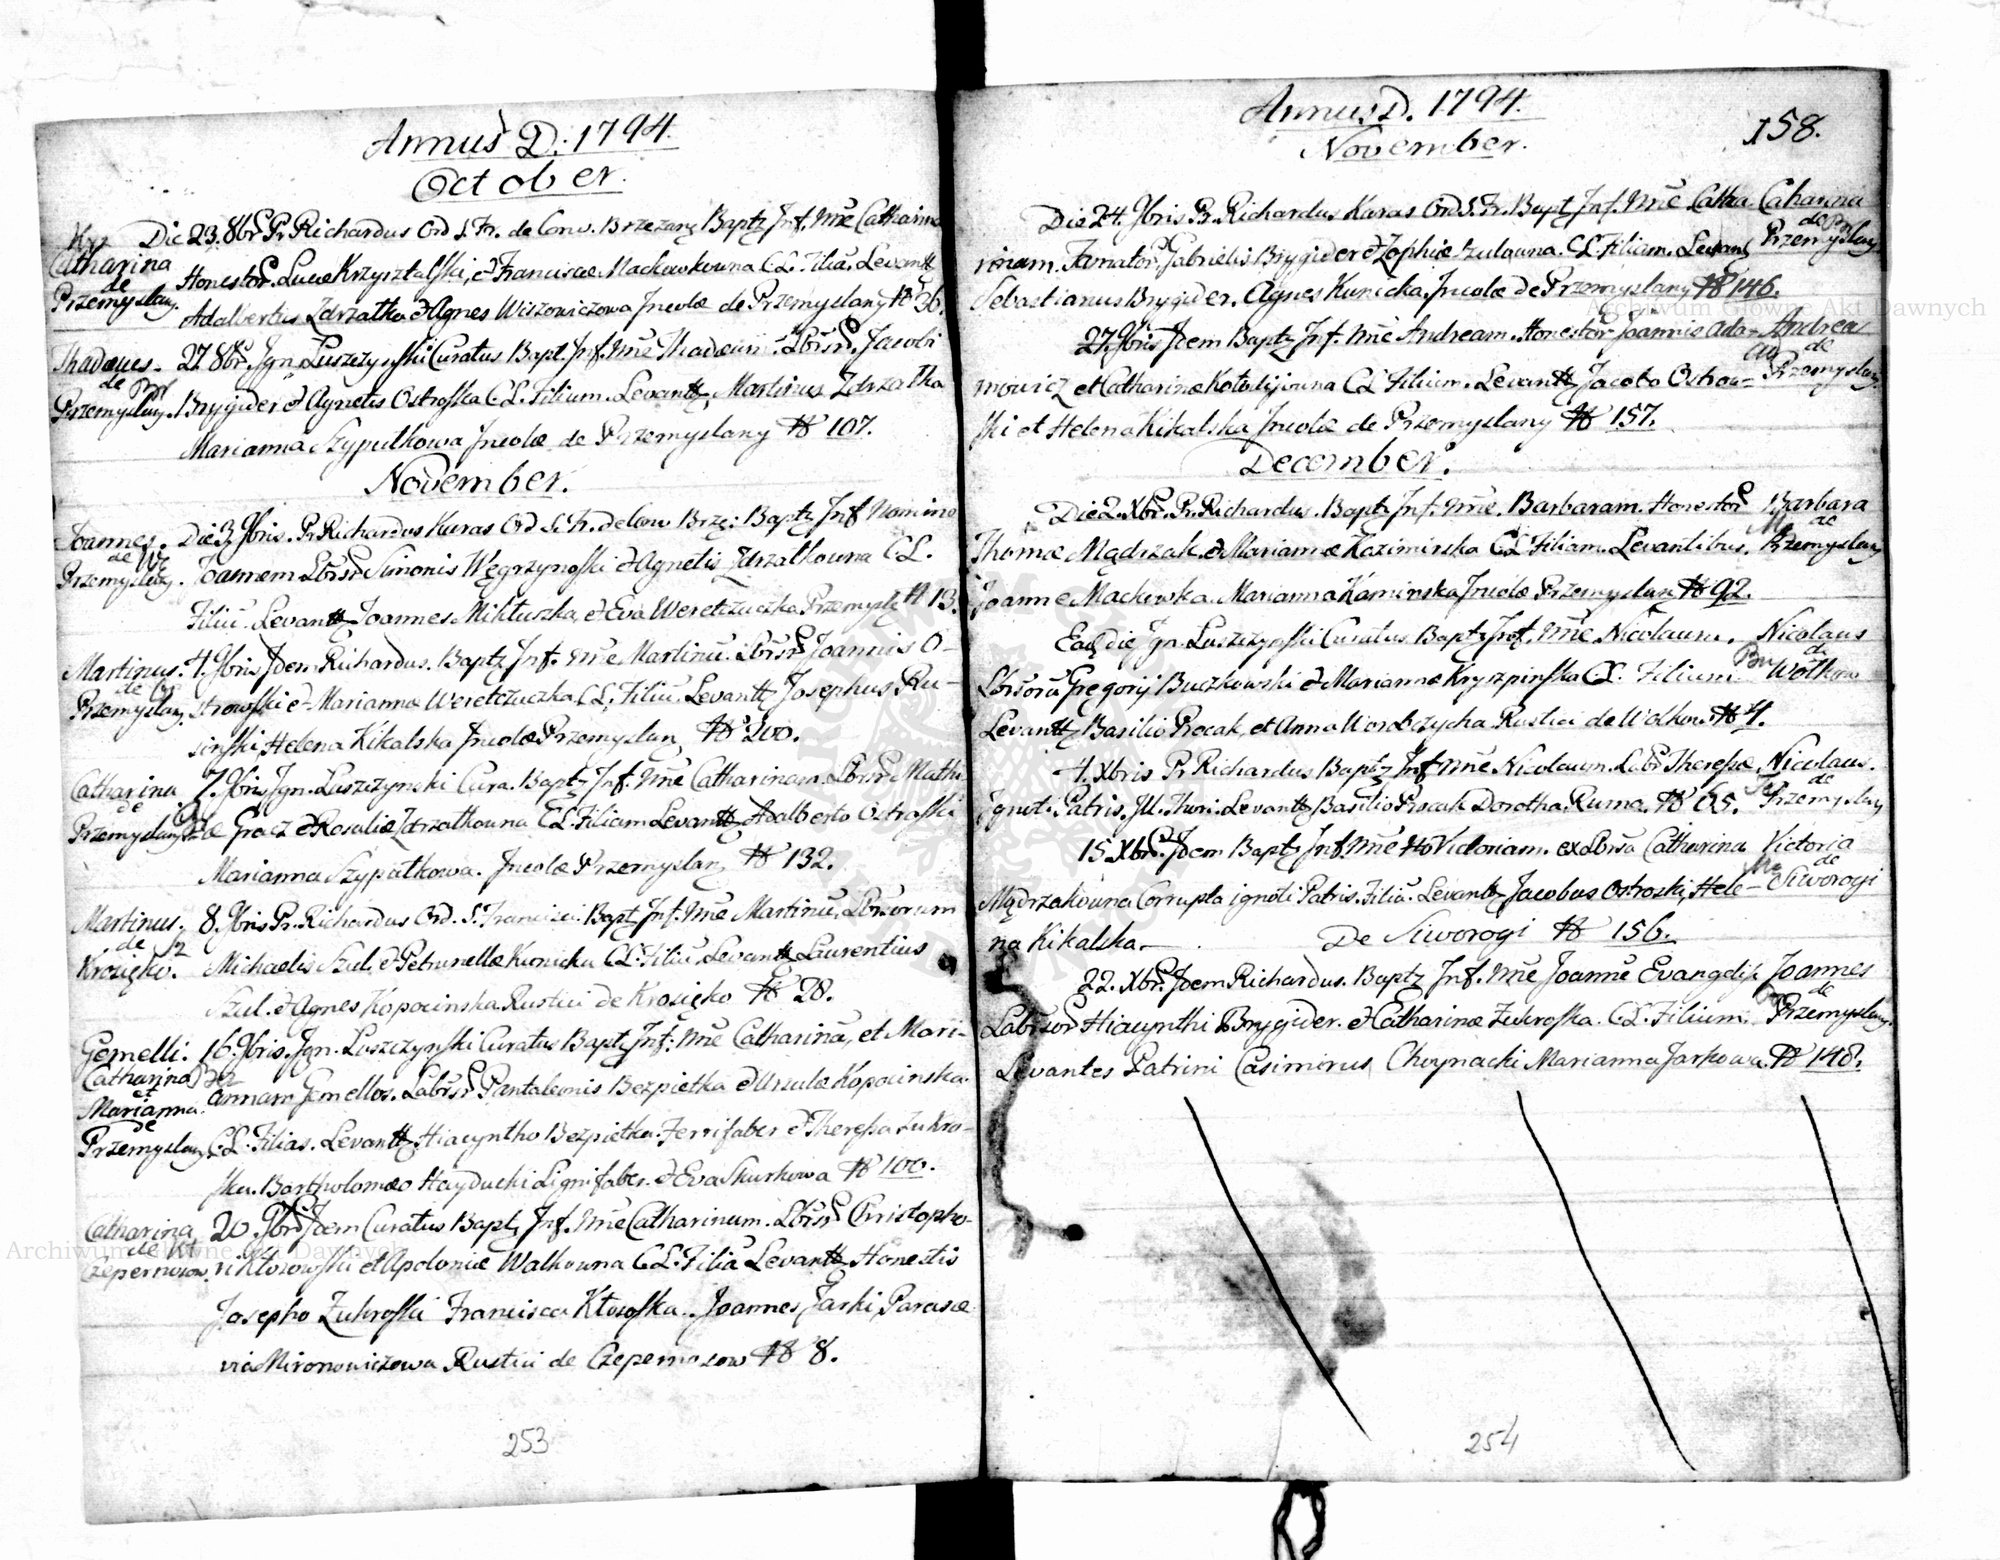 Annus D. 1794.
October.
Krz
Catharina
de
Przemyslany.
Die 23. 8bris Pr. Richardus Ord S. Fr. de Conv. Brzezany Baptz Inf. Nne Catharina
Honestor. Lucæ Krzysztalski, et Franciscæ Mackowkowna C.L. Filiã. Levantz
Adalbertus Zdrzatka et Agnes Wiszowiczowa Incolæ de Przemyslany N 36.
Thadæus.
de Br
Przemyslany.
27. 8br. Ign. Luszczynski Curatus Bapt. Inf. Nne Thadæum. Lbrsr. Jacobi
Brygider et Agnetis Ostrofska C.L. Filium. Levantz Martinus Zdrzatka
Marianna Szyputkowa Incolæ de Przemyslany N 107.
November.
Joannes.
de Wę
Przemyslany.
Die 3. 9bris. Pr. Richardus Karas Ord S. Fr. de Conv Brzę: Baptz Inf Nomine
Joannem Lbrsr Simonis Węgrzynofski et Agnetis Zdrzatkowna C.L.
Filiũ. Levantz Joannes Mikluszka, et Eva Weretczuczka Przemysly N 13.
Martinus.
de O
Przemyslany.
4. 9bris Idem Richardus. Baptz Inf. Nne Martinũ. Lbrsr Joannis O-
strowski et Marianna Weretczuczka C.L. Filiũ. Levantz Josephus Ru-
sinski, Helena Kikalska Incolæ Przemyslan N 200.
Catharina
de
Przemyslany
7. 9bris Ign. Luszczynski Cura. Baptz Inf. Nne Catharinam. Lbrsr. Mathi
æ Gracz et Rosaliæ Zdrzatkowna C.L. Filiam Levantz Adalberto Ostrofski
Marianna Szyputkowa. Incolæ Przemyslan N 132.
Martinus.
de Sz
Krosięko.
8. 9bris Pr. Richardus Ord. S. Francisci. Bapt. Inf. Nne Martinũ, Lbrsorum
Michaelis Szul, et Petrunellæ Kunicka C.L. Filiũ Levantz Laurentius
Szul. et Agnes Kopocinska Rustici de Krosięko N 28.
Gemelli.
Catharina Bez
et
Marianna.
de
Przemyslany
16. 9bris. Ign. Luszczynski Curatus Baptz Inf: Nne Catharinã, et Mari-
annam Gemellos. Labrsr Pantaleonis Bezpietka et Ursulæ Kopocinska
C.L. Filias. Levantz Hiacyntho Bezpietka Ferrifaber et Theressa Zukro-
ska. Bartholomæo Hayducki Lignifaber. et Eva Skurkowa N 100.
Catharina
de Kł
Czepernosow.
20. 9br. Idem Curatus Bapt. Inf. Nne Catharinam. Lbrsr Christopho-
ri Kłosowski et Apoloniæ Walkowna C.L. Filiã Levantz Honestis
Josepho Zukrofski Francisca Kłosofska. Joannes Jarki, Parasce
via Mironowiczowa Rustici de Czepernosow N 8.
253
Annus D. 1794.
November.
158.
Die 24. 9bris Pr. Richardus Karas Ord S. Fr. Bapt Inf. Nne Catha
rinam. Famator. Gabrielis Brygider et Zophiæ Szulowna. C.L. Filiam. Levant
Sebastianus Brygider, Agnes Kunicka, Incolæ de Przemyslany N 146.
Catharina
de Br
Przemyslany
27. 9bris Idem Baptz Inf. Nne Andream. Honestor Joannis Ada-
mowicz et Catharinæ Kotodijowna C.L. Filium. Levantz Jacobo Ostrow-
ski et Helena Kikalska Incolæ de Przemyslany N 157.
Andrea
Ad de
Przemyslany
December.
Die 2. Xbr. Pr. Richardus. Baptz Inf. Nne. Barbaram. Honestor
Thomæ Mądrzak. et Mariannæ Kazimirska C.L. Filiam. Levantibus.
Joanne Mackowka. Marianna Kaminska Incolæ Przemyslan N 92.
Barbara
Mą de
Przemyslany
Eadẽ die Ign. Luszczynski Curatus Baptz Inf. Nne Nicolaum.
Lbrsorũ Gregorij Buczkowski et Mariannæ Kryszpinska C.L. Filium
Levantz Basilio Procak, et Anna Worobczycha Rustici de Wolkow N 4.
Nicolaus
Bu de
Wolkow
4. Xbris Pr Richardus Baptz Inf Nne Nicolaum. Labr Theresæ
ignoti Patris, Ill. Thori. Levantz Basilio Procak Dorotha Ruma. N 65.
Nicolaus.
de
Przemyslany
15. Xbr. Idem Baptz Inf. Nne Victoriam. ex Lbrsa Catharina
Mądrzakowna Corrupta ignoti Patris. Filiã. Levantz Jacobus Ostroski, Hele-
na Kikalska. De Siworogi N 156.
Victoria
Mą de
Siworogi
22. Xbr. Idem Richardus. Baptz Inf. Nne Joannẽ Evangelis
Labrsor Hiacynthi Brygider. et Catharinæ Zukrofska. C.L. Filium.
Levantes Patrini Casimirus Choynacki Marianna Jarkowa. N 148.
Joannes
de
Przemyslany
254
Archiwum Główne Akt Dawnych
Archiwum Główne Akt Dawnych